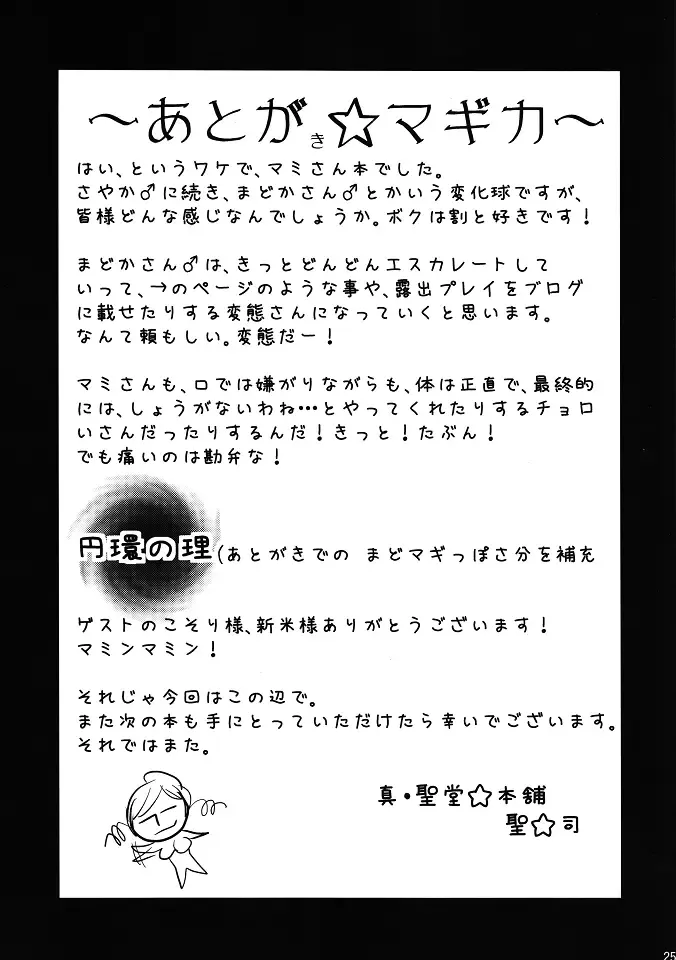 ～あとがき☆マギカ～
はい、というワケで、マミさん本でした。
さやか♂に続き、まどかさん♂とかいう変化球ですが、
皆様どんな感じなんでしょうか。ボクは割と好きです！
まどかさん♂は、きっとどんどんエスカレートして
いって、→のページのような事や、露出プレイをブログ
に載せたりする変態さんになっていくと思います。
なんて頼もしい。変態だー！
マミさんも、口では嫌がりながらも、体は正直で、最終的
には、しょうがないわね…とやってくれたりするチョロ
いさんだったりするんだ！きっと！たぶん！
でも痛いのは勘弁な！
円環の理(あとがきでの まどマギっぽさ分を補充
ゲストのこそり様、新米様ありがとうございます！
マミンマミン！
それじゃ今回はこの辺で。
また次の本も手にとっていただけたら幸いでございます。
それではまた。
真・聖堂☆本舗
聖☆司
25